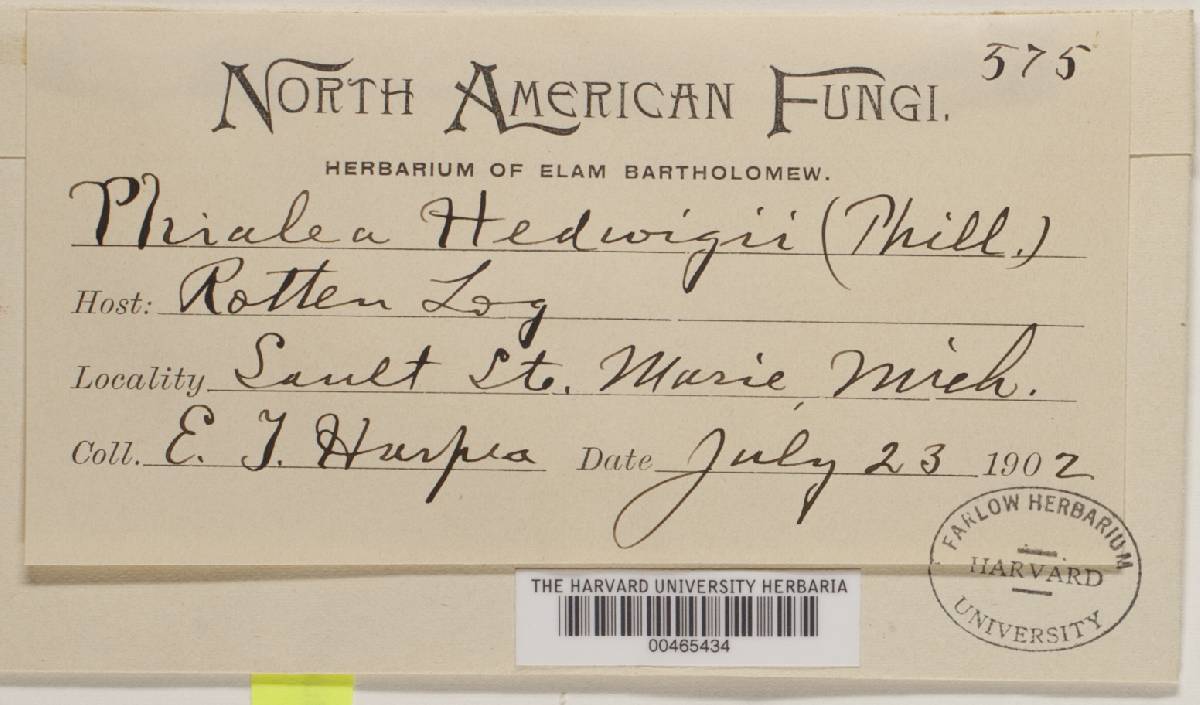 575
NORTH AMERICAN FUNGI.
HERBARIUM OF ELAM BARTHOLOMEW.
Phialea Hedwigii (Phill.)
Host: Rotten Log
Locality Sault Ste. Marie, Mich.
Coll. E. T. Harper Date July 23 1902
FARLOW HERBARIUM
HARVARD
UNIVERSITY
THE HARVARD UNIVERSITY HERBARIA
00465434